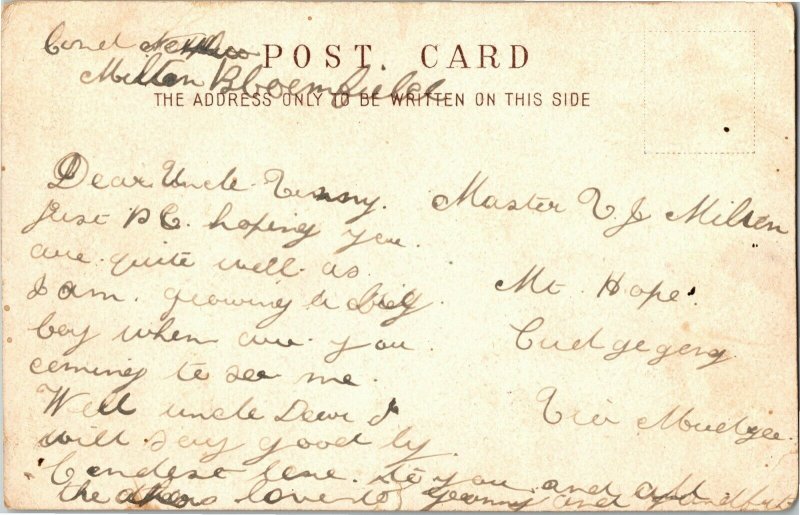 POST CARD
THE ADDRESS ONLY TO BE WRITTEN ON THIS SIDE
Milton Bloomfield
Dear Uncle
just PC. hoping you
are quite well as
I am. growing a big
boy when are you
coming to see me.
Well uncle Dear I
will say good by.
to you and all
the others love to and
Master V J Milton
Mt. Hope
Cudgegong
Via Mudgee